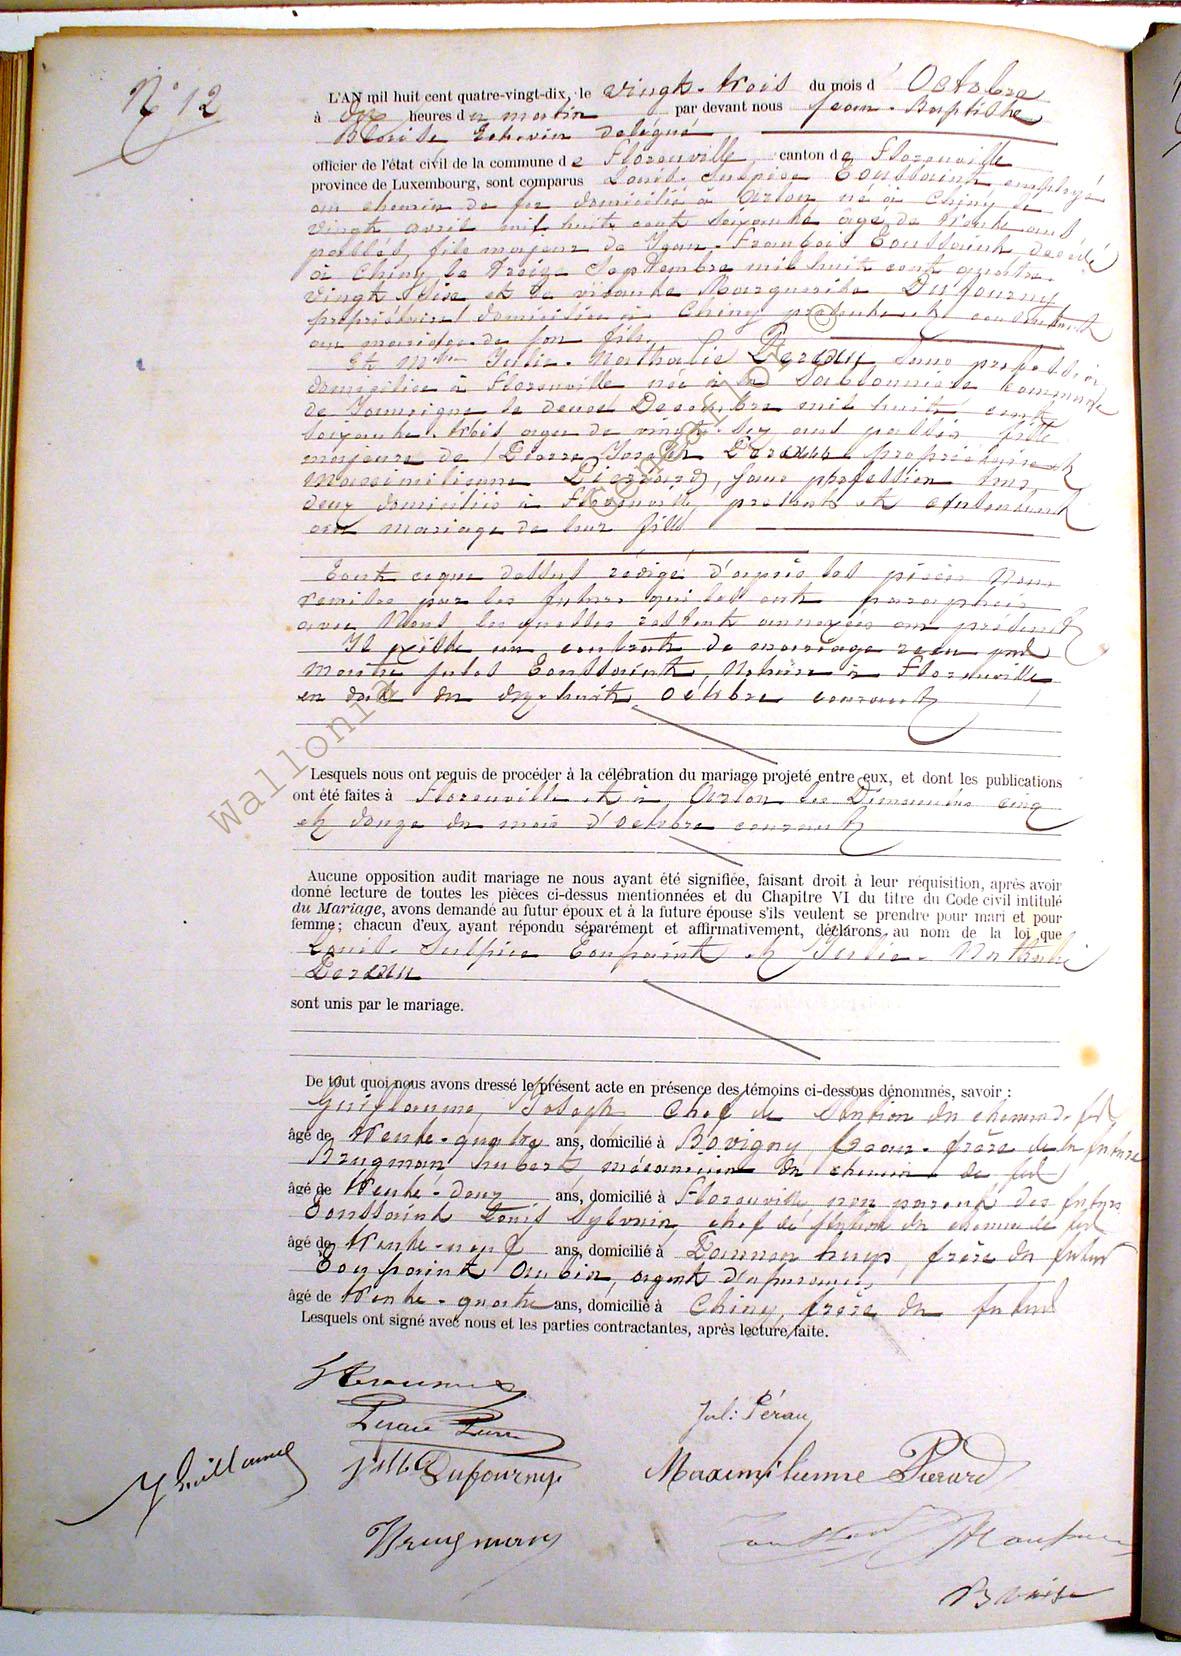 N° 12
L'AN mil huit cent quatre-vingt-dix, le vingt-trois du mois d' Octobre
à dix heures du matin par devant nous Jean-Baptiste
Blaise Echevin délégué
officier de l'état civil de la commune de Florenville, canton de Florenville
province de Luxembourg, sont comparus Louis-Sulpice Toussaint employé
au chemin de fer domicilié à Arlon né à Chiny le
vingt avril mil huit cent soixante âgé de trente ans
passés, fils majeur de Jean-François Toussaint décédé
à Chiny le treize Septembre mil huit cent quatre-
vingt six et de vivante Marguerite Dufourny
propriétaire domiciliée à Chiny présente et consentant
au mariage de son fils.
Et Melle Julie-Nathalie Perau sans profession
domiciliée à Florenville née à la Sablonnière commune
de Jamoigne le deux Décembre mil huit cent
soixante-trois agée de vingt-six ans passés, fille
majeure de Pierre Joseph Perau propriétaire et
Maximilienne Pierrard, sans profession tous
deux domiciliés à Florenville, présents et consentant
au mariage de leur fille
Tout ce que dessus rédigé d'après les pièces Nous
remises par les futurs qui les ont paraphées
avec Nous, lesquelles restent annexées au présent
Il existe un contrat de mariage reçu par
Maître Jules Toussaint, Notaire à Florenville,
en date du dix-huit octobre courant
Lesquels nous ont requis de procéder à la célébration du mariage projeté entre eux, et dont les publications
ont été faites à Florenville et à Arlon les Dimanches cinq
et douze du mois d'octobre courant
Aucune opposition audit mariage ne nous ayant été signifiée, faisant droit à leur réquisition, après avoir
donné lecture de toutes les pièces ci-dessus mentionnées et du Chapitre VI du titre du Code civil intitulé
du Mariage, avons demandé au futur époux et à la future épouse s'ils veulent se prendre pour mari et pour
femme; chacun d'eux ayant répondu séparément et affirmativement, déclarons au nom de la loi que
Louis-Sulpice Toussaint et Julie-Nathalie
Perau
sont unis par le mariage.
De tout quoi nous avons dressé le présent acte en présence des témoins ci-dessous dénommés, savoir :
Guillaume, Joseph chef de station du chemin de fer
âgé de trente-quatre ans, domicilié à Bovigny, beau-frère de la future
Brugman hubert mécanicien du chemin de fer
âgé de trente-deux ans, domicilié à Florenville non parent des futurs
Toussaint Louis Sylvain, chef de station du chemin de fer
âgé de trente-neuf ans, domicilié à frère du futur
Toussaint Aubin, agent d'assurances
âgé de trente-quatre ans, domicilié à Chiny, frère du futur
Lesquels ont signé avec nous et les parties contractantes, après lecture faite.
Jul: Pérau
Dufourny
Maximilienne Pierard
J Guillaume
Brugman
Blaise
Wallonia Genealogy ©